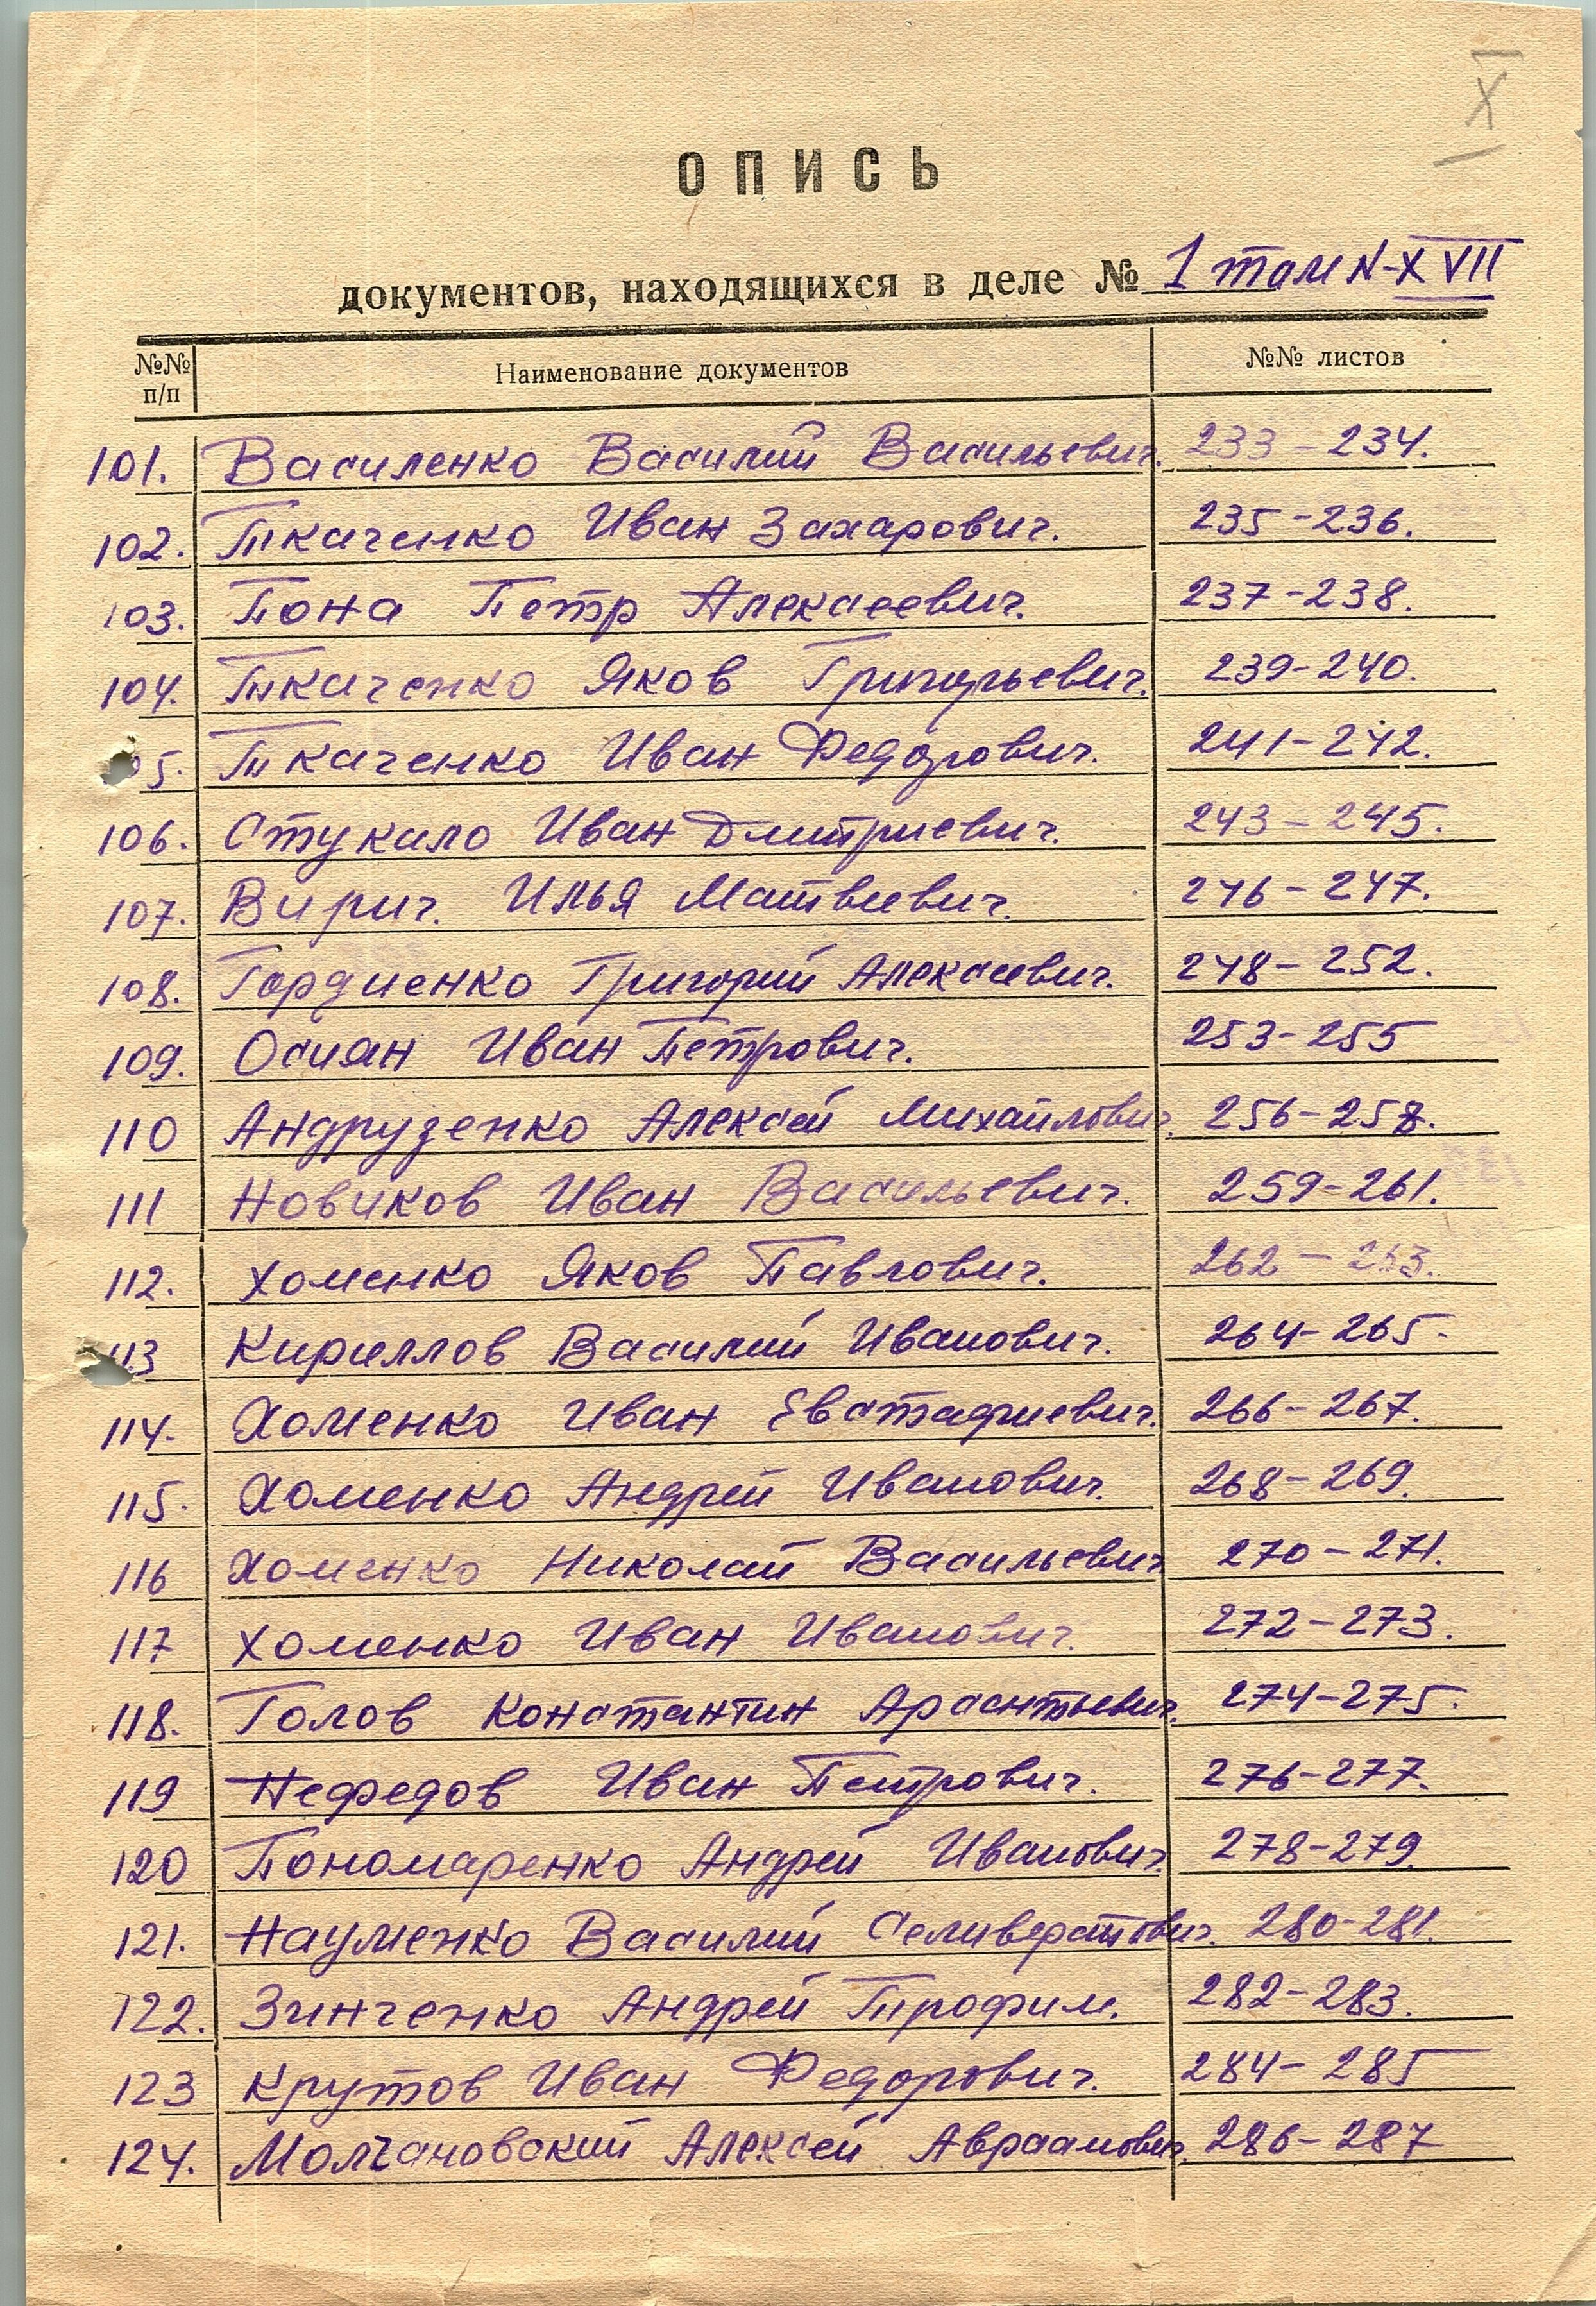 XI
ОПИСЬ
документов, находящихся в деле № 1 том N-XVII
№№ п/п Наименование документов №№ листов
101. Василенко Василий Васильевич. 233-234.
102. Ткаченко Иван Захарович. 235-236.
103. Пона Петр Алексеевич. 237-238.
104. Ткаченко Яков Григорьевич. 239-240.
5. Ткаченко Иван Федорович. 241-242.
106. Стукало Иван Дмитриевич. 243-245.
107. Вирич. Илья Матвеевич. 246-247.
108. Гордиенко Григорий Алексеевич. 248-252.
109. Осиян Иван Петрович. 253-255
110 Андрузенко Алексей Михайлович. 256-258.
111 Новиков Иван Васильевич. 259-261.
112. Хоменко Яков Павлович. 262-263.
113 Кириллов Василий Иванович. 264-265.
114. Хоменко Иван Евстафиевич. 266-267.
115. Хоменко Андрей Иванович. 268-269.
116 Хоменко Николай Васильевич 270-271.
117 Хоменко Иван Иванович. 272-273.
118. Голов Константин 274-275.
119 Нефедов Иван Петрович. 276-277.
120 Пономаренко Андрей Иванович. 278-279.
121. Науменко Василий Селиверстович. 280-281.
122. Зинченко Андрей Трофим. 282-283.
123 Крутов Иван Федорович. 284-285
124. Молчановский Алексей Авраамович. 286-287